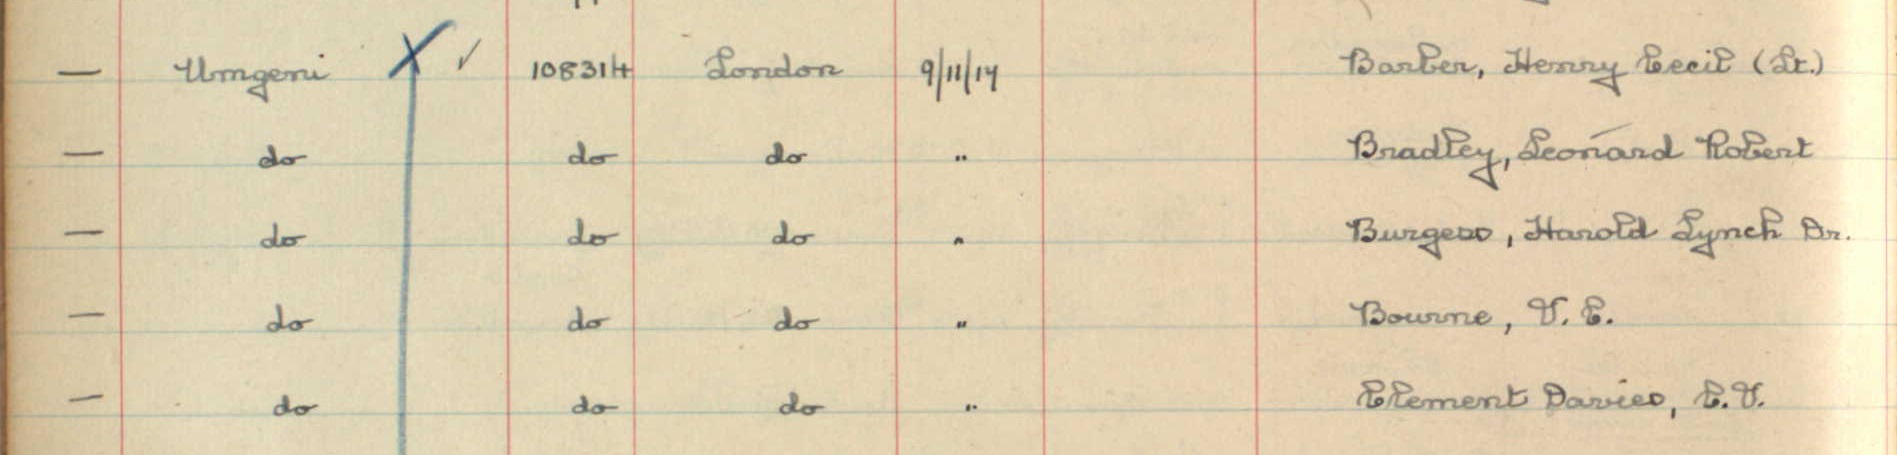 — Umgeni X ✓ 108314 London 9/11/14 Barber, Henry Cecil (Lt.)
— do do do " Bradley, Leonard Robert
— do do do " Burgess, Harold Lynch Dr.
— do do do " Bourne, V. C.
— do do do " Clement Davies, C. V.